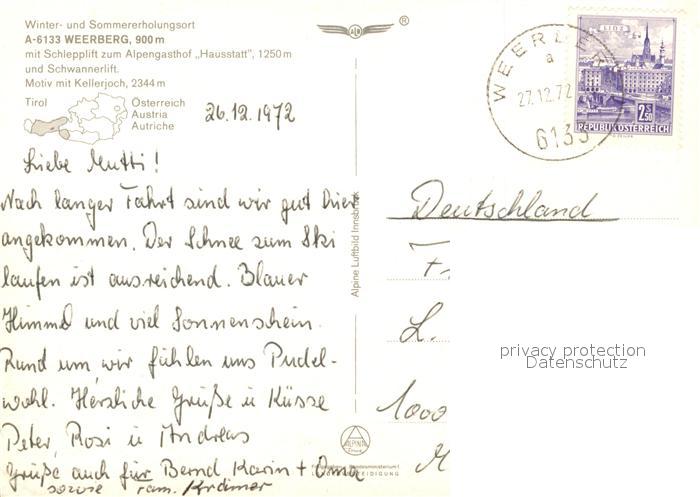 Winter- und Sommererholungsort
A-6133 WEERBERG, 900 m
mit Schlepplift zum Alpengasthof „Hausstatt", 1250 m
und Schwannerlift.
Motiv mit Kellerjoch, 2344 m
Tirol
Österreich
Austria
Autriche
26.12.1972
Liebe Mutti!
Nach langer Fahrt sind wir gut hier
angekommen. Der Schnee zum Ski
laufen ist ausreichend. Blauer
Himmel und viel Sonnenschein.
Rund um wir fühlen uns Pudel-
wohl. Herzliche Grüße u Küsse
Peter, Rosi u Andreas
Grüße auch für Bernd Karin + Oma
sowie Fam. Krämer
Alpine Luftbild Innsbruck
®
WEERB
a
27.12.72
6133
LINZ
2.50
REPUBLIK ÖSTERREICH
Deutschland
F.
L.
1000
privacy protection
Datenschutz
ALPINE